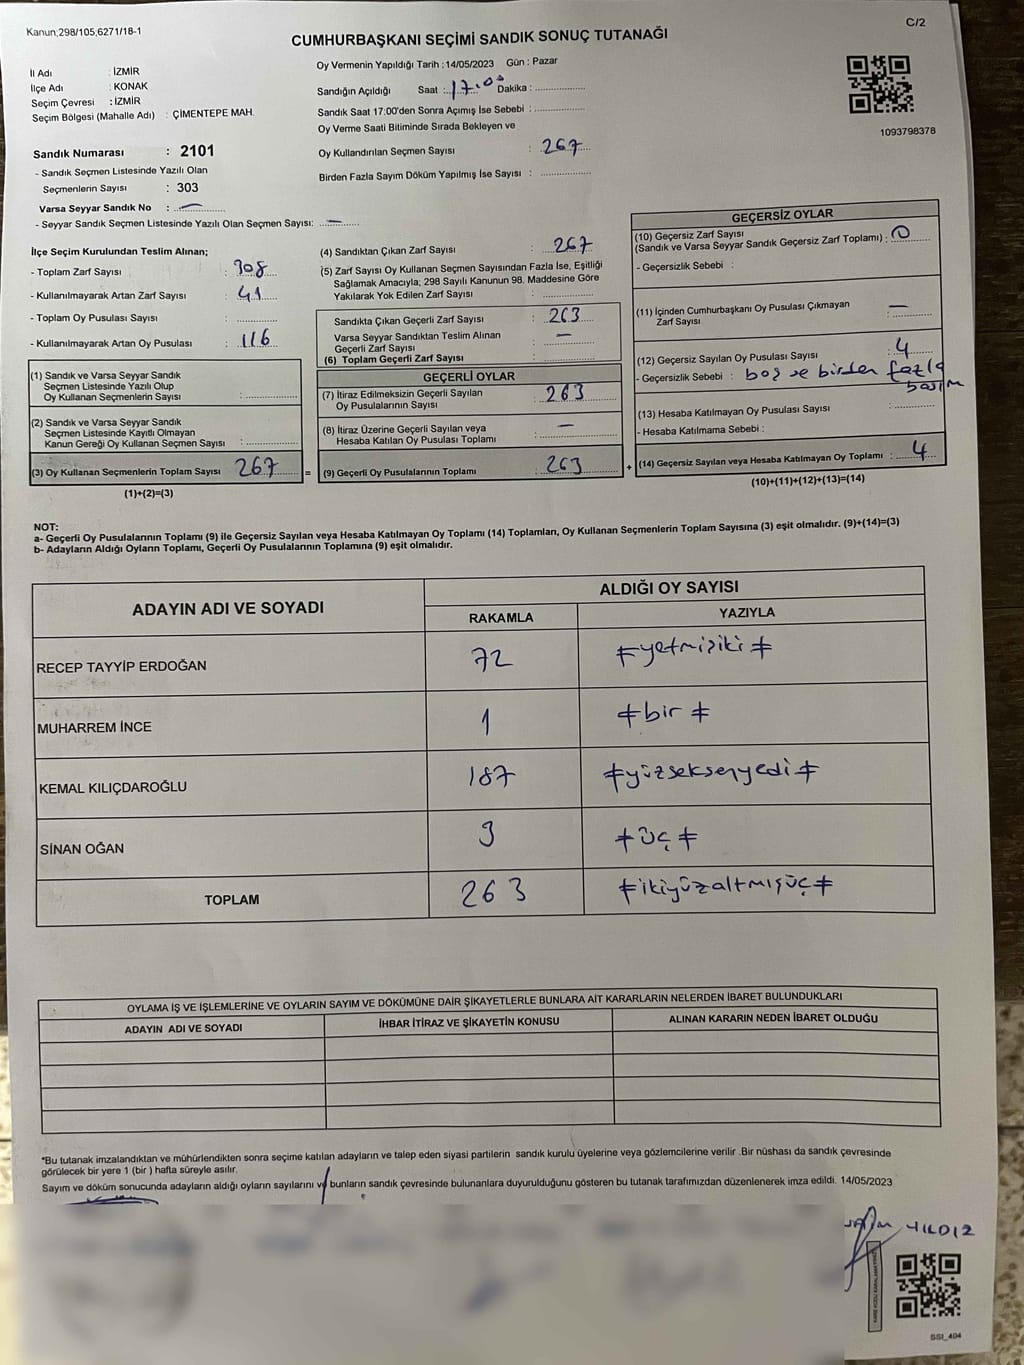 Kanun;298/105;6271/18-1
C/2
CUMHURBAŞKANI SEÇİMİ SANDIK SONUÇ TUTANAĞI
İl Adı : İZMİR
İlçe Adı : KONAK
Seçim Çevresi : İZMİR
Seçim Bölgesi (Mahalle Adı) : ÇİMENTEPE MAH.
Oy Vermenin Yapıldığı Tarih :14/05/2023 Gün : Pazar
Sandığın Açıldığı Saat : 17.00 Dakika :
Sandık Saat 17:00'den Sonra Açımış İse Sebebi :
Oy Verme Saati Bitiminde Sırada Bekleyen ve
Oy Kullandırılan Seçmen Sayısı : 267
Birden Fazla Sayım Döküm Yapılmış İse Sayısı :
1093798378
Sandık Numarası : 2101
- Sandık Seçmen Listesinde Yazılı Olan
Seçmenlerin Sayısı : 303
Varsa Seyyar Sandık No : —
- Seyyar Sandık Seçmen Listesinde Yazılı Olan Seçmen Sayısı: —
İlçe Seçim Kurulundan Teslim Alınan;
- Toplam Zarf Sayısı : 308
- Kullanılmayarak Artan Zarf Sayısı : 41
- Toplam Oy Pusulası Sayısı :
- Kullanılmayarak Artan Oy Pusulası : 116
(1) Sandık ve Varsa Seyyar Sandık
Seçmen Listesinde Yazılı Olup
Oy Kullanan Seçmenlerin Sayısı :
(2) Sandık ve Varsa Seyyar Sandık
Seçmen Listesinde Kayıtlı Olmayan
Kanun Gereği Oy Kullanan Seçmen Sayısı :
(3) Oy Kullanan Seçmenlerin Toplam Sayısı 267 =
(1)+(2)=(3)
(4) Sandıktan Çıkan Zarf Sayısı : 267
(5) Zarf Sayısı Oy Kullanan Seçmen Sayısından Fazla İse, Eşitliği
Sağlamak Amacıyla; 298 Sayılı Kanunun 98. Maddesine Göre
Yakılarak Yok Edilen Zarf Sayısı :
Sandıkta Çıkan Geçerli Zarf Sayısı : 263
Varsa Seyyar Sandıktan Teslim Alınan
Geçerli Zarf Sayısı : —
(6) Toplam Geçerli Zarf Sayısı :
GEÇERLİ OYLAR
(7) İtiraz Edilmeksizin Geçerli Sayılan
Oy Pusulalarının Sayısı : 263
(8) İtiraz Üzerine Geçerli Sayılan veya
Hesaba Katılan Oy Pusulası Toplamı : —
(9) Geçerli Oy Pusulalarının Toplamı : 263 +
GEÇERSİZ OYLAR
(10) Geçersiz Zarf Sayısı
(Sandık ve Varsa Seyyar Sandık Geçersiz Zarf Toplamı) : 0
- Geçersizlik Sebebi :
(11) İçinden Cumhurbaşkanı Oy Pusulası Çıkmayan
Zarf Sayısı : —
(12) Geçersiz Sayılan Oy Pusulası Sayısı : 4
- Geçersizlik Sebebi : boş ve birden fazla
basım
(13) Hesaba Katılmayan Oy Pusulası Sayısı :
- Hesaba Katılmama Sebebi :
(14) Geçersiz Sayılan veya Hesaba Katılmayan Oy Toplamı : 4
(10)+(11)+(12)+(13)=(14)
NOT:
a- Geçerli Oy Pusulalarının Toplamı (9) ile Geçersiz Sayılan veya Hesaba Katılmayan Oy Toplamı (14) Toplamları, Oy Kullanan Seçmenlerin Toplam Sayısına (3) eşit olmalıdır. (9)+(14)=(3)
b- Adayların Aldığı Oyların Toplamı, Geçerli Oy Pusulalarının Toplamına (9) eşit olmalıdır.
ADAYIN ADI VE SOYADI
ALDIĞI OY SAYISI
RAKAMLA YAZIYLA
RECEP TAYYİP ERDOĞAN 72 ≠yetmişiki≠
MUHARREM İNCE 1 ≠bir≠
KEMAL KILIÇDAROĞLU 187 ≠yüzseksenyedi≠
SİNAN OĞAN 3 ≠üç≠
TOPLAM 263 ≠ikiyüzaltmışüç≠
OYLAMA İŞ VE İŞLEMLERİNE VE OYLARIN SAYIM VE DÖKÜMÜNE DAİR ŞİKAYETLERLE BUNLARA AİT KARARLARIN NELERDEN İBARET BULUNDUKLARI
ADAYIN ADI VE SOYADI İHBAR İTİRAZ VE ŞİKAYETİN KONUSU ALINAN KARARIN NEDEN İBARET OLDUĞU
*Bu tutanak imzalandıktan ve mühürlendikten sonra seçime katılan adayların ve talep eden siyasi partilerin sandık kurulu üyelerine veya gözlemcilerine verilir .Bir nüshası da sandık çevresinde
görülecek bir yere 1 (bir ) hafta süreyle asılır.
Sayım ve döküm sonucunda adayların aldığı oyların sayılarını ve bunların sandık çevresinde bulunanlara duyurulduğunu gösteren bu tutanak tarafımızdan düzenlenerek imza edildi. 14/05/2023
YILDIZ
SSI_404